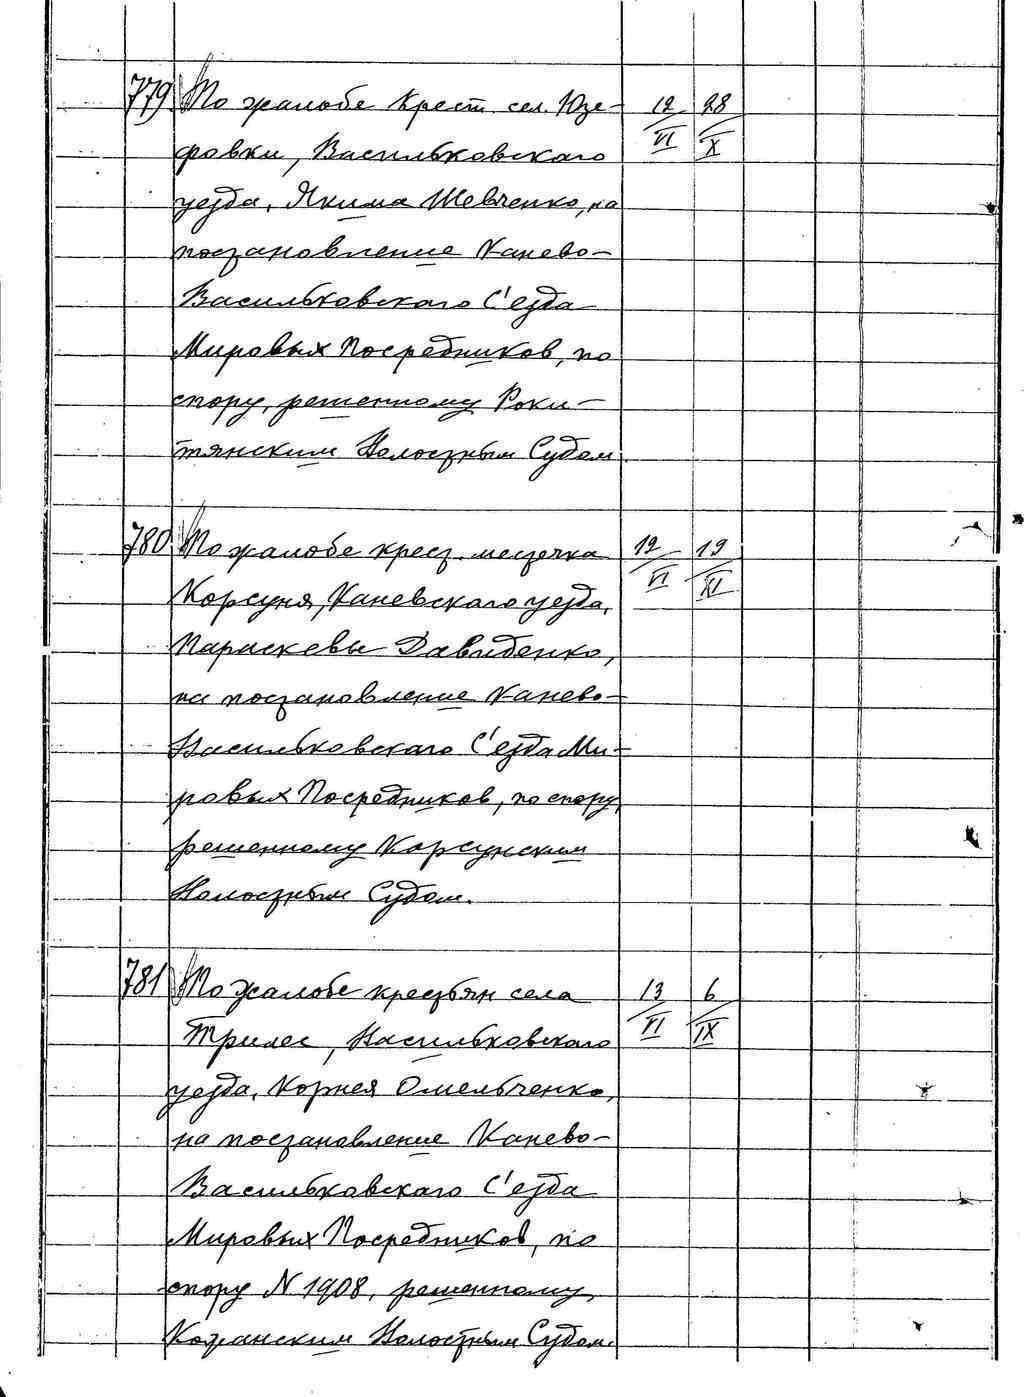 779 По жалобе крест. сел. Юзе- 12/VI 28/X
фовки, Васильковскаго
уезда, Якима Шевченко, на
постановление Канево-
Васильковскаго С'езда
Мировых Посредников, по
спору, решенному Роки-
тянским Волостным Судом.
780 По жалобе крест. местечка 12/VI 19/XI
Корсуня, Каневскаго уезда,
Параскевы Давиденко,
на постановление Канево-
Васильковскаго С'езда Ми-
ровых Посредников, по спору,
решенному Корсунским
Волостным Судом.
781 По жалобе крестьян села 13/VI 6/IX
Трилес, Васильковскаго
уезда, Корнея Омельченко,
на постановление Канево-
Васильковскаго С'езда
Мировых Посредников, по
спору N 1908, решенному
Кожанским Волостным Судом.